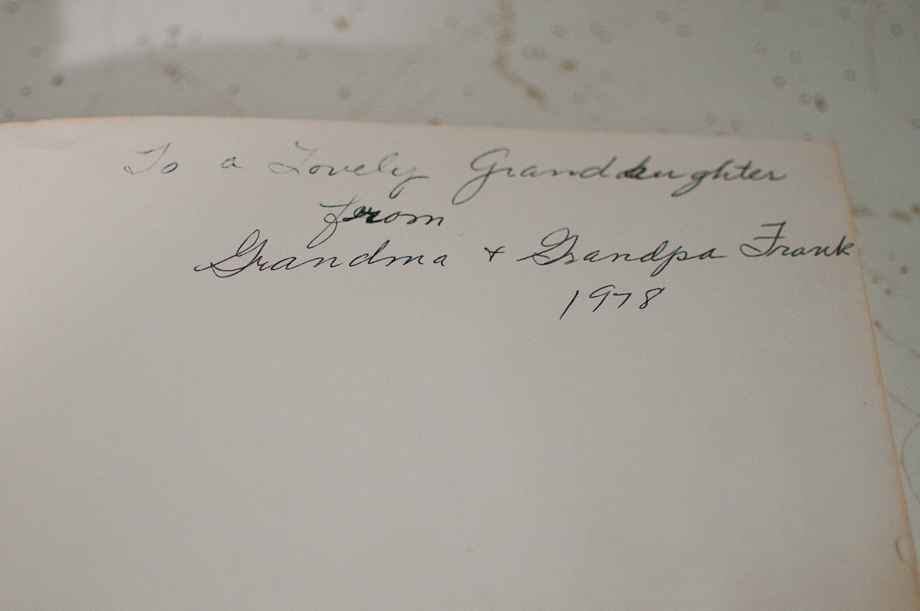 To a Lovely Granddaughter
from
Grandma + Grandpa Frank
1978